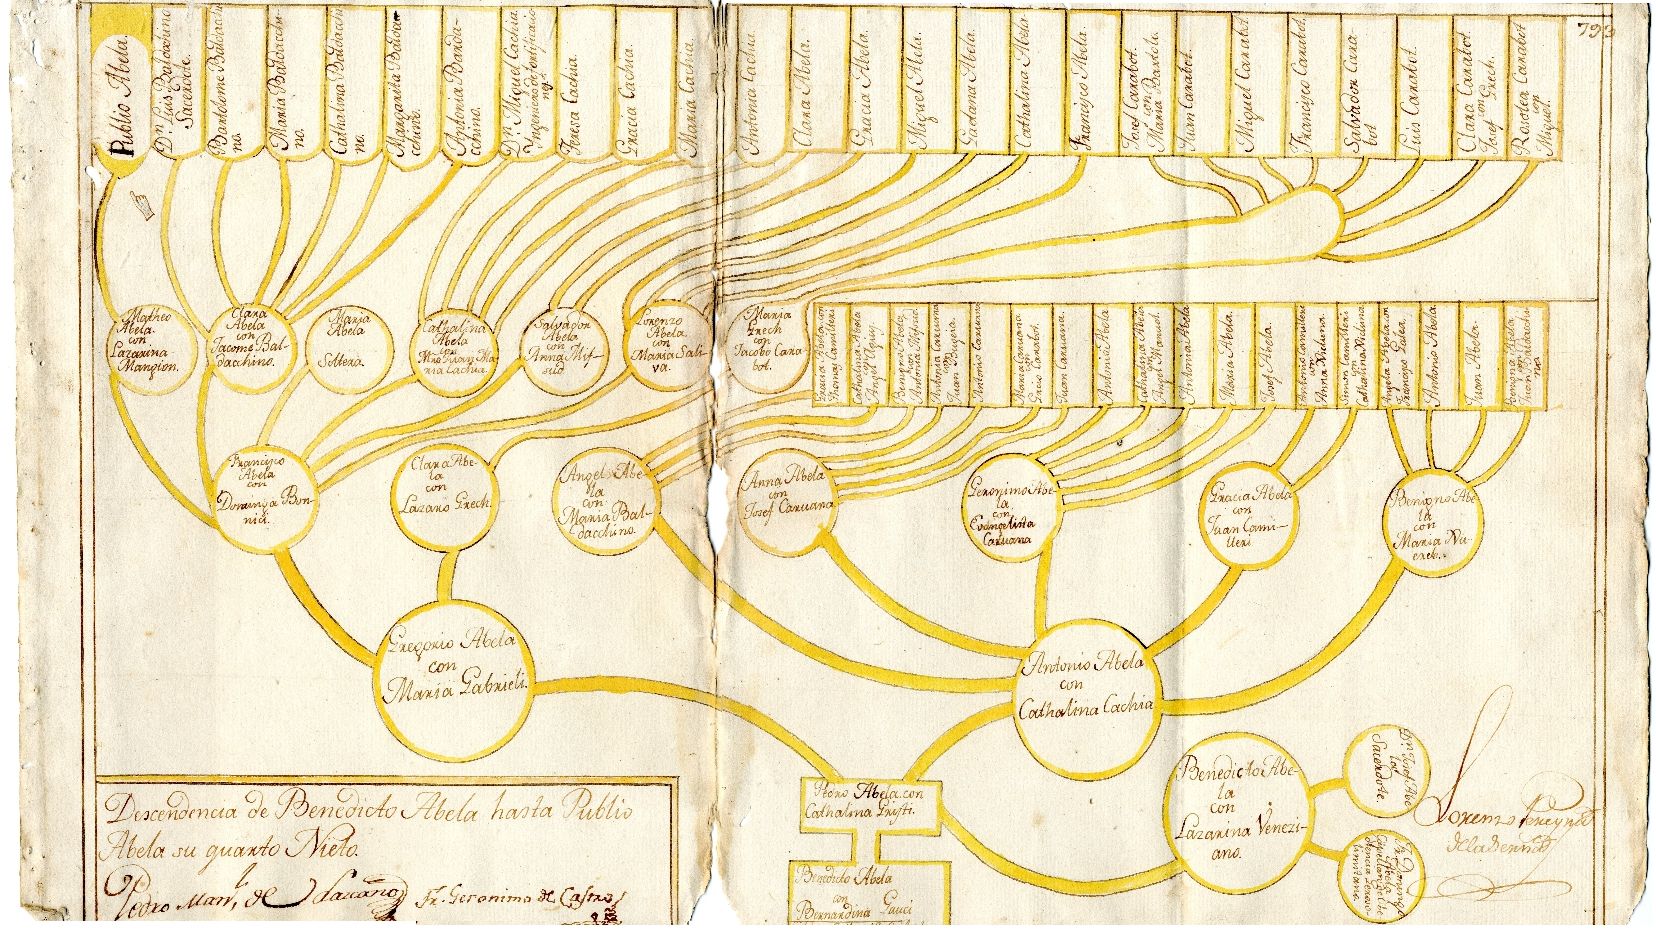 793
Publio Abela.
Dn. Luis Baldachino
Sacerdote.
Bartolome Baldachi
no.
Maria Baldachi
no.
Cathalina Baldachi
no.
Margarita Balda
chino.
Antonia Balda-
chino.
Dn. Miguel Cachia
Ingeniero de fortificacio
nes
Teresa Cachia.
Gracia Cachia.
Maria Cachia.
Antonia Cachia.
Clara Abela.
Gracia Abela.
Miguel Abela.
Gaetana Abela.
Cathalina Abela.
Francisco Abela.
Josef Carabot.
con
Maria Bartolo.
Juan Carabot.
Miguel Carabot.
Francisco Carabot.
Salvador Cara
bot
Luis Carabot.
Clara Carabot.
con
Josef Grech.
Rosolea Carabot
con
Miguel.
Matheo
Abela.
con
Lazarina
Mangion.
Clara
Abela
con
Jacome Bal-
dachino.
Maria
Abela
Soltera.
Cathalina
Abela
con
Mro Juan Ma-
ria Cachia.
Salvador
Abela
con
Anna Mif-
sud
Lorenzo
Abela.
con
Maria Sali-
va.
Maria
Grech
con
Jacobo Cara-
bot.
Gracia Abela con
Thomas Camilleri
Cathalina Abela
con
Angel Agius.
Benigno Abela.
con
Antonia
Antonia Caruana
con
Juan
Antonio Caruana
Maria Caruana
con
Lucio Carabot.
Juan Caruana.
Antonio Abela
Cathalina Abela
con
Angel Manuel.
Antonia Abela
Alosia Abela.
Josef Abela.
Antonio Camilleri
con
Anna
Simon Camilleri
con
Cathalina
Angela Abela con
Francisco
Antonio Abela
Juan Abela.
Abela
con
Francisco
Abela
con
Dominga Bon-
nici.
Clara Abe-
la
con
Lazaro Grech.
Angel Abe-
la
con
Maria Bal-
dacchino.
Anna Abela
con
Josef Caruana
Geronimo Abe-
la.
con
Evangelista
Caruana
Gracia Abela
con
Juan Cami-
lleri
Benigno Abe
la
con
Maria
Gregorio Abela
con
Maria Gabrieli.
Antonio Abela
con
Cathalina Cachia
Pedro Abela con
Cathalina Gristi.
Benedicto Abe-
la
con
Lazarina Venezi-
ano.
Dn. Josef Abe
la
Sacerdote.
Benedicto Abela
con
Bernardina Gauci
Descendencia de Benedicto Abela hasta Publio
Abela su quarto Nieto.
Pedro Man. de
Fr. Geronimo de Castro
Lorenzo